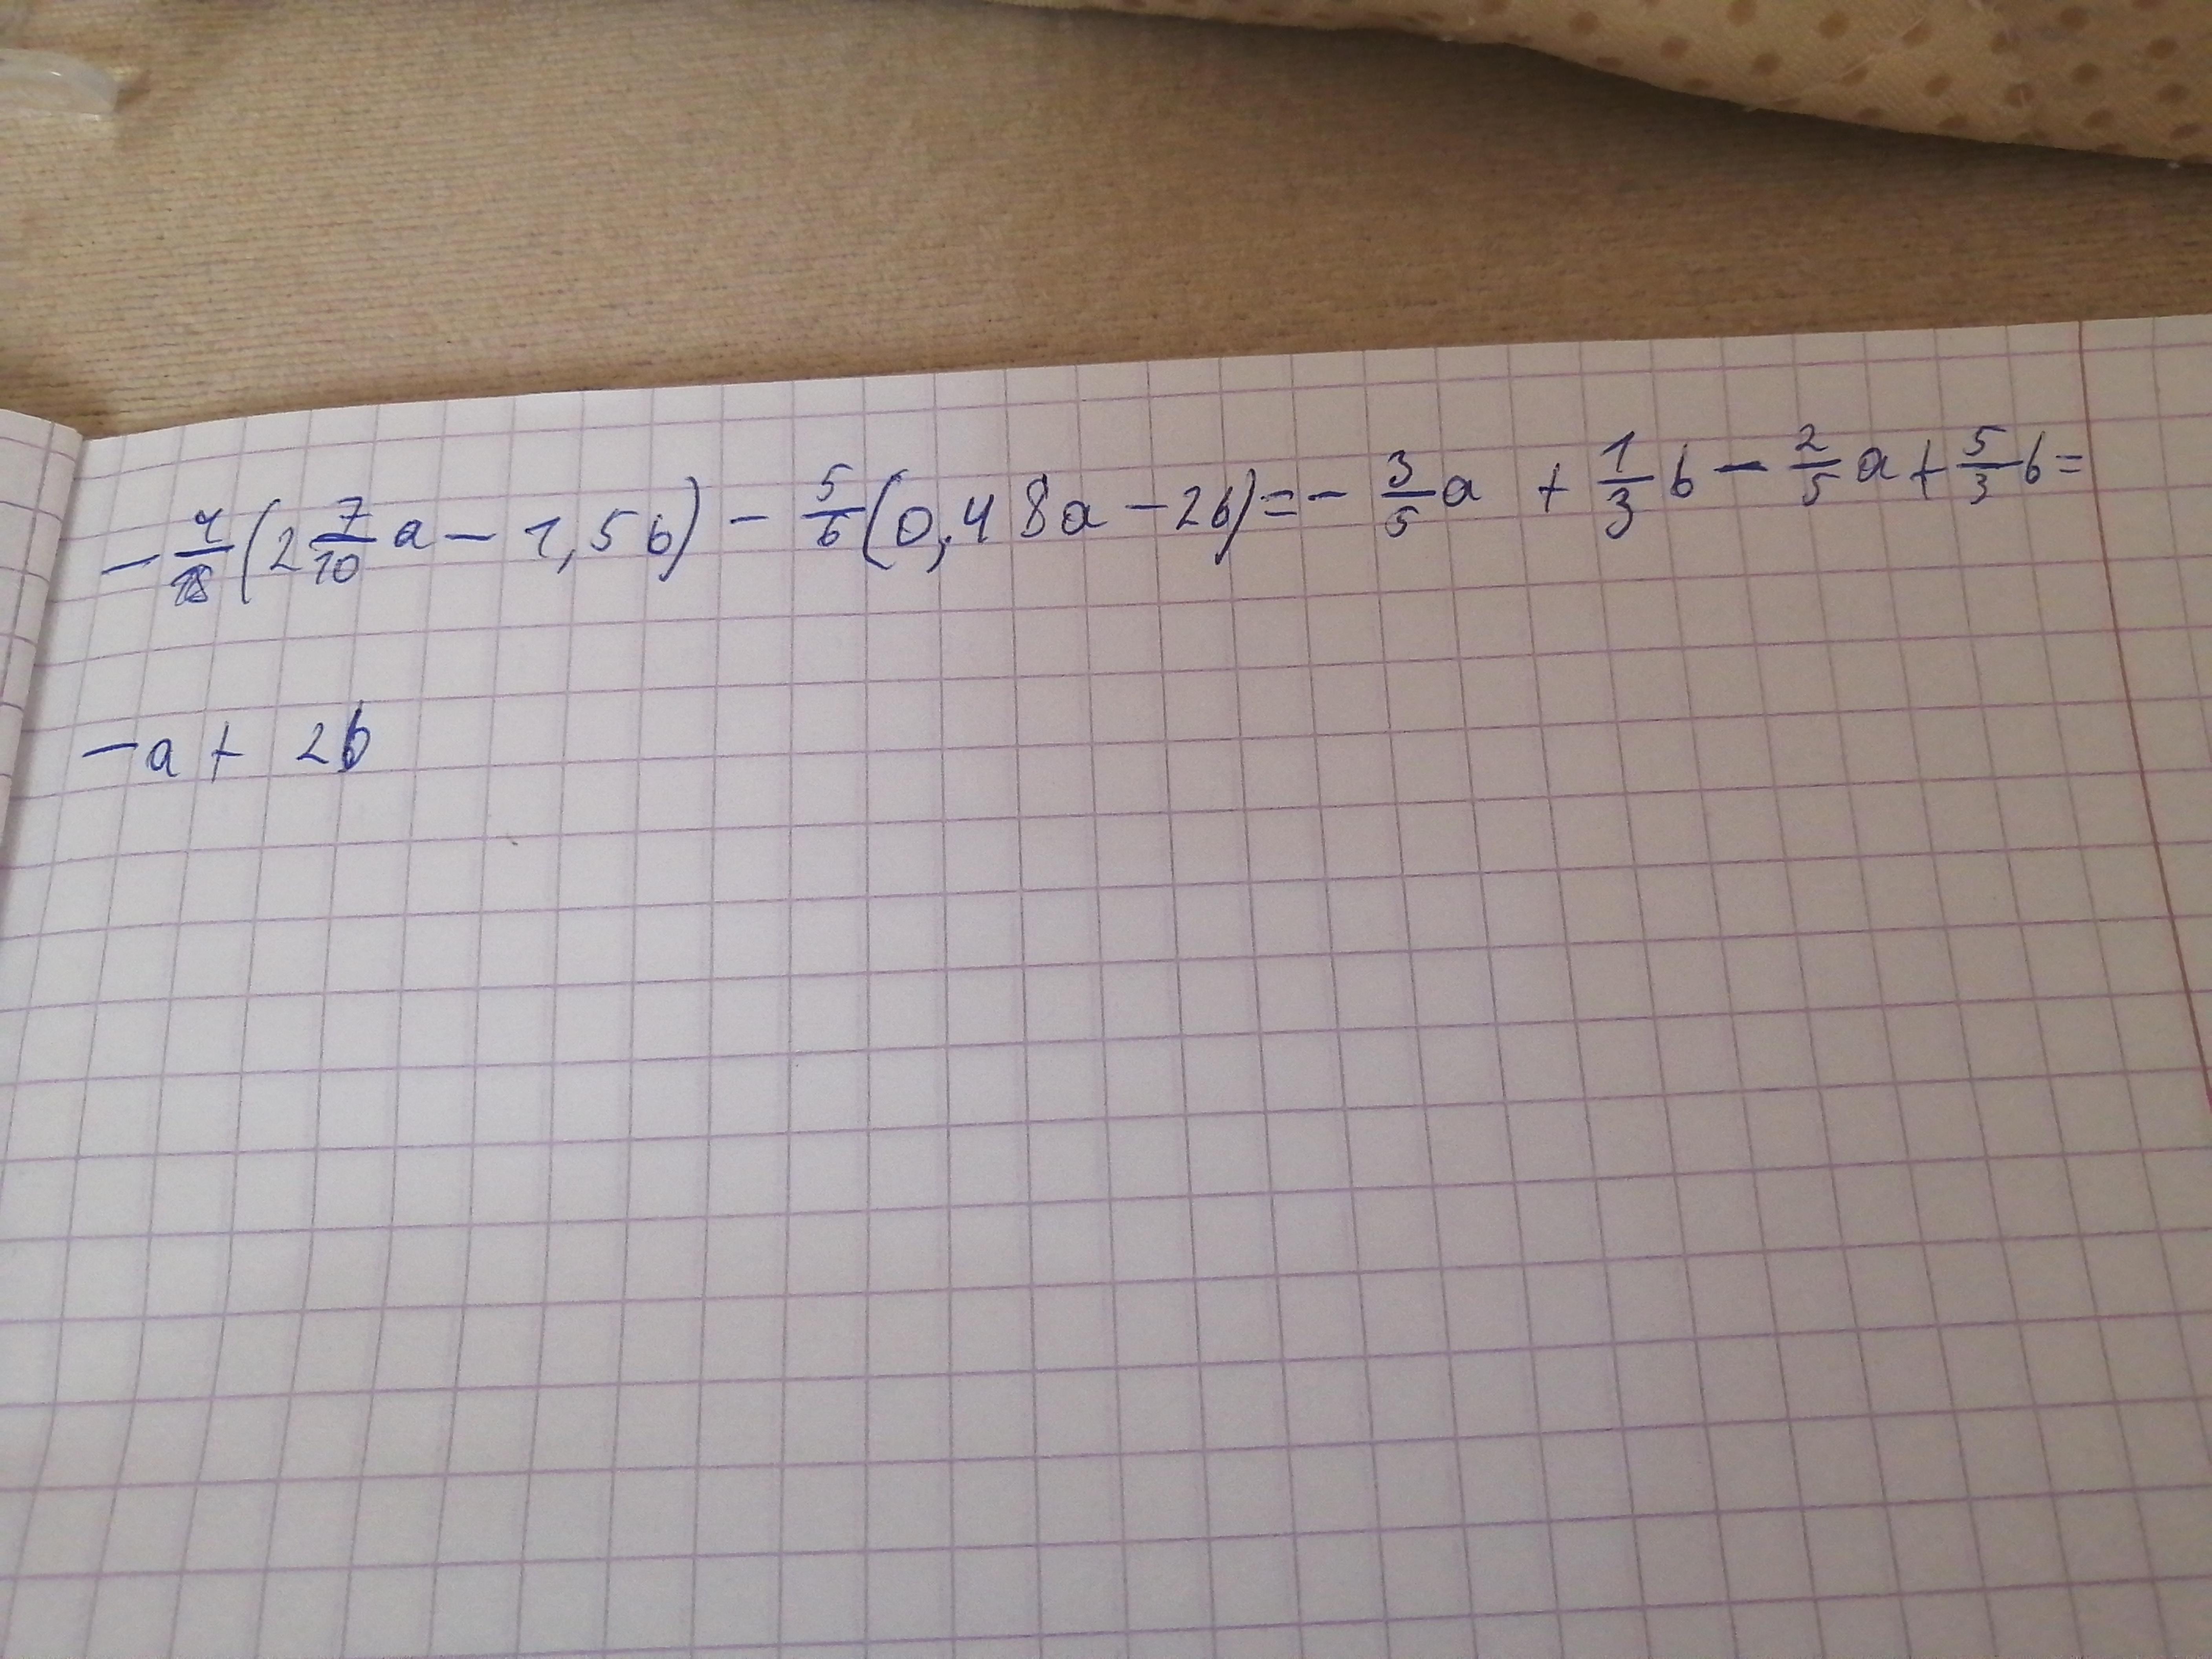 -4/18(2 7/10 a - 1,5b) - 5/6(0,48a - 2b) = - 3/5 a + 1/3 b - 2/5 a + 5/3 b =
-a + 2b